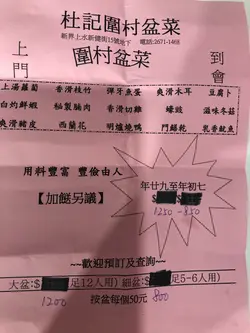 杜記圍村盆菜
新界上水新健街15號地下 電話:2671-1468
上門
圍村盆菜
到會
上湯蘿蔔 香滑枝竹 彈牙魚蛋 爽滑木耳 豆腐卜
白灼鮮蝦 秘製腩肉 香滑切雞 蠔豉 滋味冬菇
爽滑豬皮 西蘭花 明爐燒鴨 門鱔乾 乳香魷魚
用料豐富 豐儉由人
【加餸另議】
年廿九至年初七
1250-850
~~歡迎預訂及查詢~~
大盆:$ 足12人用) 細盆:$ 足5-6人用)
1200 按盆每個50元 800